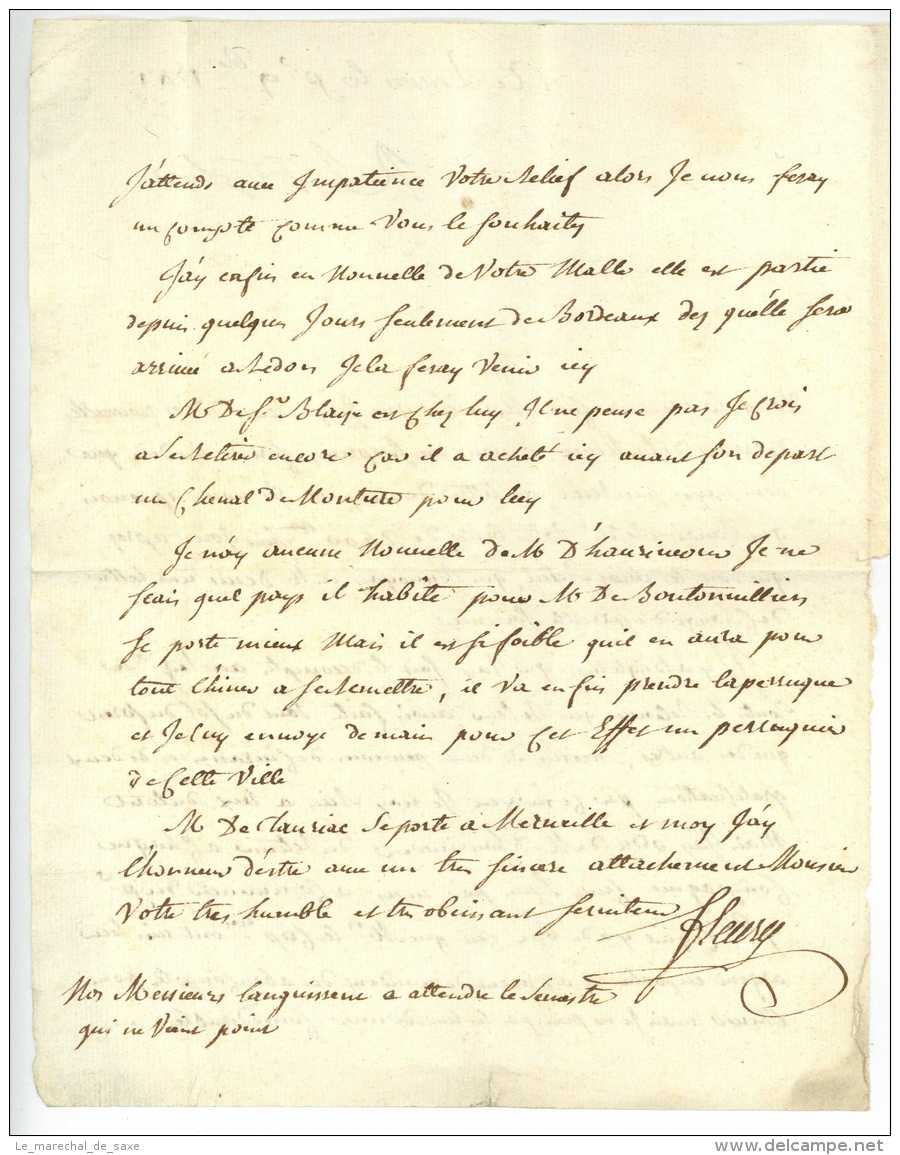 J'attends avec Impatience Votre Relief alors Je vous feray
un Compte Comme Vous le Souhaites
J'ay enfin eu Nouvelle de Votre Malle elle est partie
depuis quelques Jours Seulement de Bordeaux des qu'elle Sera
arrivée a Redon Je la feray Venir icy
M De St Blaise est Chez luy Il ne pense pas Je Crois
a Se Retirer encore Car il a acheté icy avant Son depart
un Cheval de Monture pour luy
Je n'ay aucune Nouvelle de M Je ne
Scais quel pays il habite pour M De Boutonvilliers
Se porte mieux Mais il est Si foible qu'il en aura pour
tout L'hiver a Se Remettre, il Va enfin prendre la perruque
et Je luy envoye demain pour Cet Effet un perruquier
de Cette Ville
M De Clauriac Se porte a Merveille et moy J'ay
L'honneur d'estre avec un tres Sincere attachement Monsieur
Votre tres humble et tres obeissant Serviteur Fleury
Nos Messieurs languissent a attendre le Semestre
qui ne Vient point
Le_marechal_de_saxe
delcampe.net